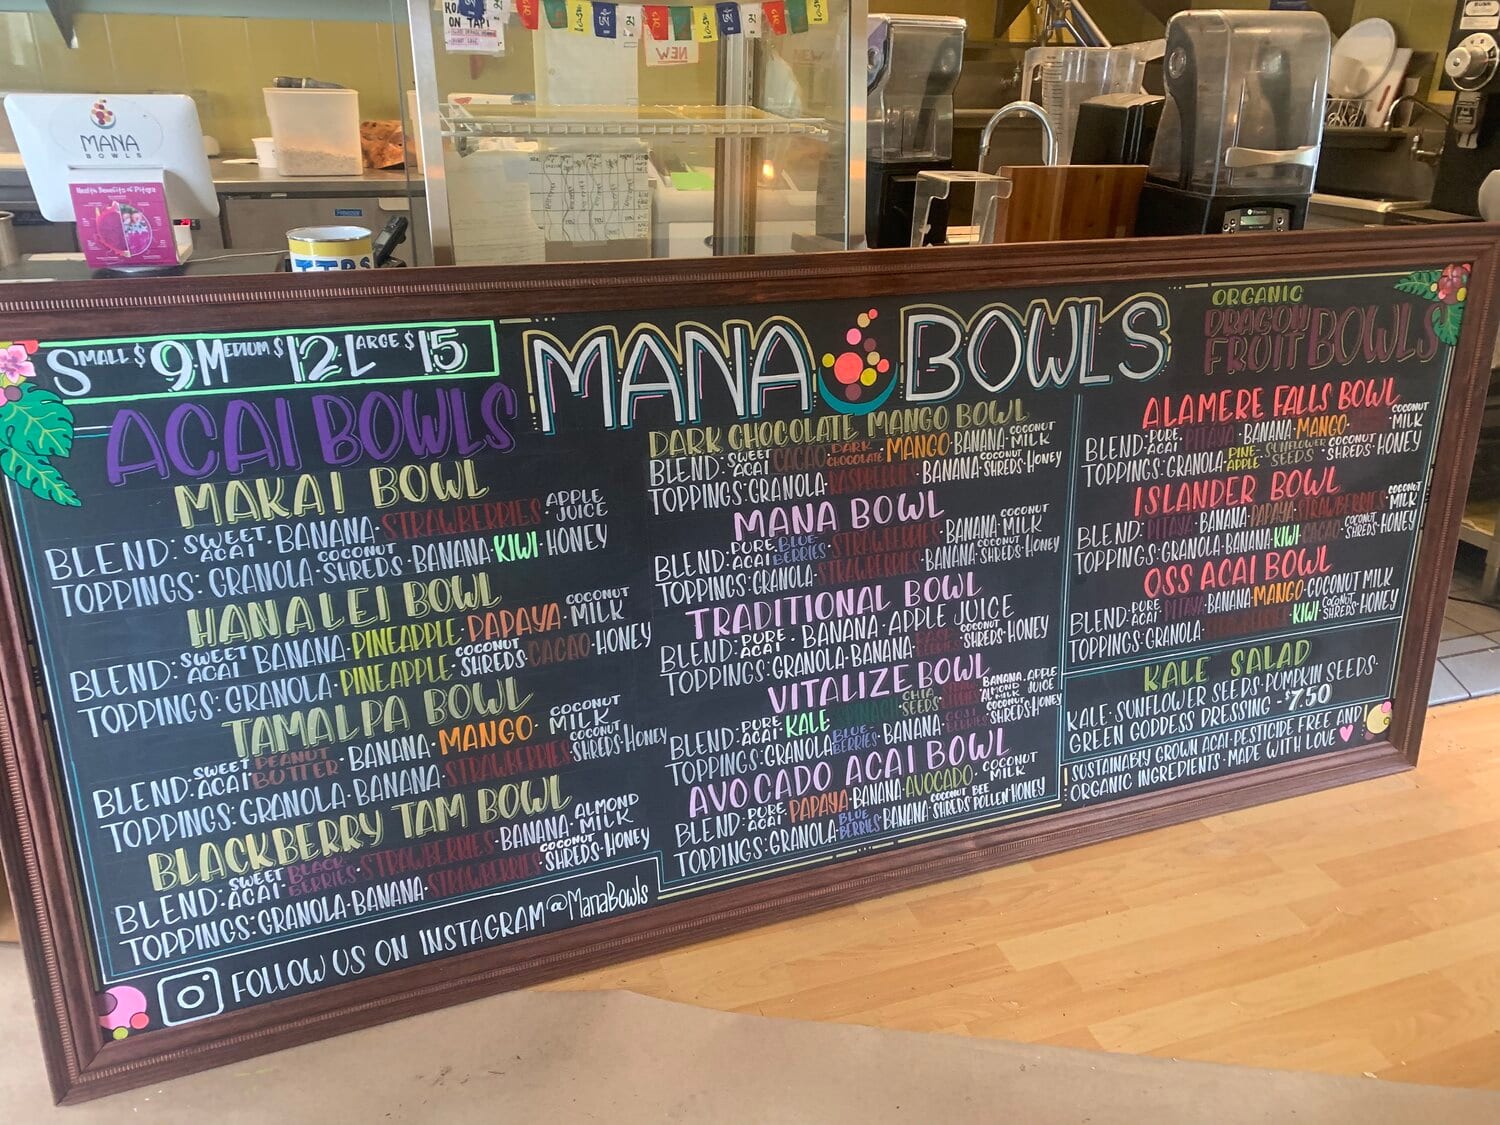 ON TAP!
NEW
MANA
BOWLS
Health Benefits of Pitaya
TIPS
SMALL $9 MEDIUM $12 LARGE $15
MANA BOWLS
ACAI BOWLS
MAKAI BOWL
BLEND: SWEET ACAI · BANANA · STRAWBERRIES · APPLE JUICE
TOPPINGS: GRANOLA · COCONUT SHREDS · BANANA · KIWI · HONEY
HANALEI BOWL
BLEND: SWEET ACAI · BANANA · PINEAPPLE · PAPAYA · COCONUT MILK
TOPPINGS: GRANOLA · PINEAPPLE · COCONUT SHREDS · CACAO · HONEY
TAMALPA BOWL
BLEND: SWEET ACAI · PEANUT BUTTER · BANANA · MANGO · COCONUT MILK
TOPPINGS: GRANOLA · BANANA · STRAWBERRIES · COCONUT SHREDS · HONEY
BLACKBERRY TAM BOWL
BLEND: SWEET ACAI · BLACKBERRIES · STRAWBERRIES · BANANA · ALMOND MILK
TOPPINGS: GRANOLA · BANANA · STRAWBERRIES · COCONUT SHREDS · HONEY
FOLLOW US ON INSTAGRAM @ManaBowls
DARK CHOCOLATE MANGO BOWL
BLEND: SWEET ACAI · CACAO · DARK CHOCOLATE · MANGO · BANANA · COCONUT MILK
TOPPINGS: GRANOLA · RASPBERRIES · BANANA · COCONUT SHREDS · HONEY
MANA BOWL
BLEND: PURE ACAI · BLUEBERRIES · STRAWBERRIES · BANANA · COCONUT MILK
TOPPINGS: GRANOLA · STRAWBERRIES · BANANA · COCONUT SHREDS · HONEY
TRADITIONAL BOWL
BLEND: PURE ACAI · BANANA · APPLE JUICE
TOPPINGS: GRANOLA · BANANA · BERRIES · COCONUT SHREDS · HONEY
VITALIZE BOWL
BLEND: PURE ACAI · KALE · SPINACH · CHIA SEEDS · BANANA · ALMOND MILK · APPLE JUICE
TOPPINGS: GRANOLA · BLUEBERRIES · BANANA · GOJI BERRIES · COCONUT SHREDS · HONEY
AVOCADO ACAI BOWL
BLEND: PURE ACAI · PAPAYA · BANANA · AVOCADO · COCONUT MILK
TOPPINGS: GRANOLA · BLUEBERRIES · BANANA · COCONUT SHREDS · BEE POLLEN · HONEY
ORGANIC
DRAGON FRUIT BOWLS
ALAMERE FALLS BOWL
BLEND: PURE ACAI · PITAYA · BANANA · MANGO · COCONUT MILK
TOPPINGS: GRANOLA · PINEAPPLE · SUNFLOWER SEEDS · COCONUT SHREDS · HONEY
ISLANDER BOWL
BLEND: PITAYA · BANANA · PAPAYA · STRAWBERRIES · COCONUT MILK
TOPPINGS: GRANOLA · BANANA · KIWI · CACAO · COCONUT SHREDS · HONEY
OSS ACAI BOWL
BLEND: PURE ACAI · PITAYA · BANANA · MANGO · COCONUT MILK
TOPPINGS: GRANOLA · KIWI · COCONUT SHREDS · HONEY
KALE SALAD
KALE · SUNFLOWER SEEDS · PUMPKIN SEEDS ·
GREEN GODDESS DRESSING - $7.50
SUSTAINABLY GROWN ACAI · PESTICIDE FREE AND
ORGANIC INGREDIENTS · MADE WITH LOVE